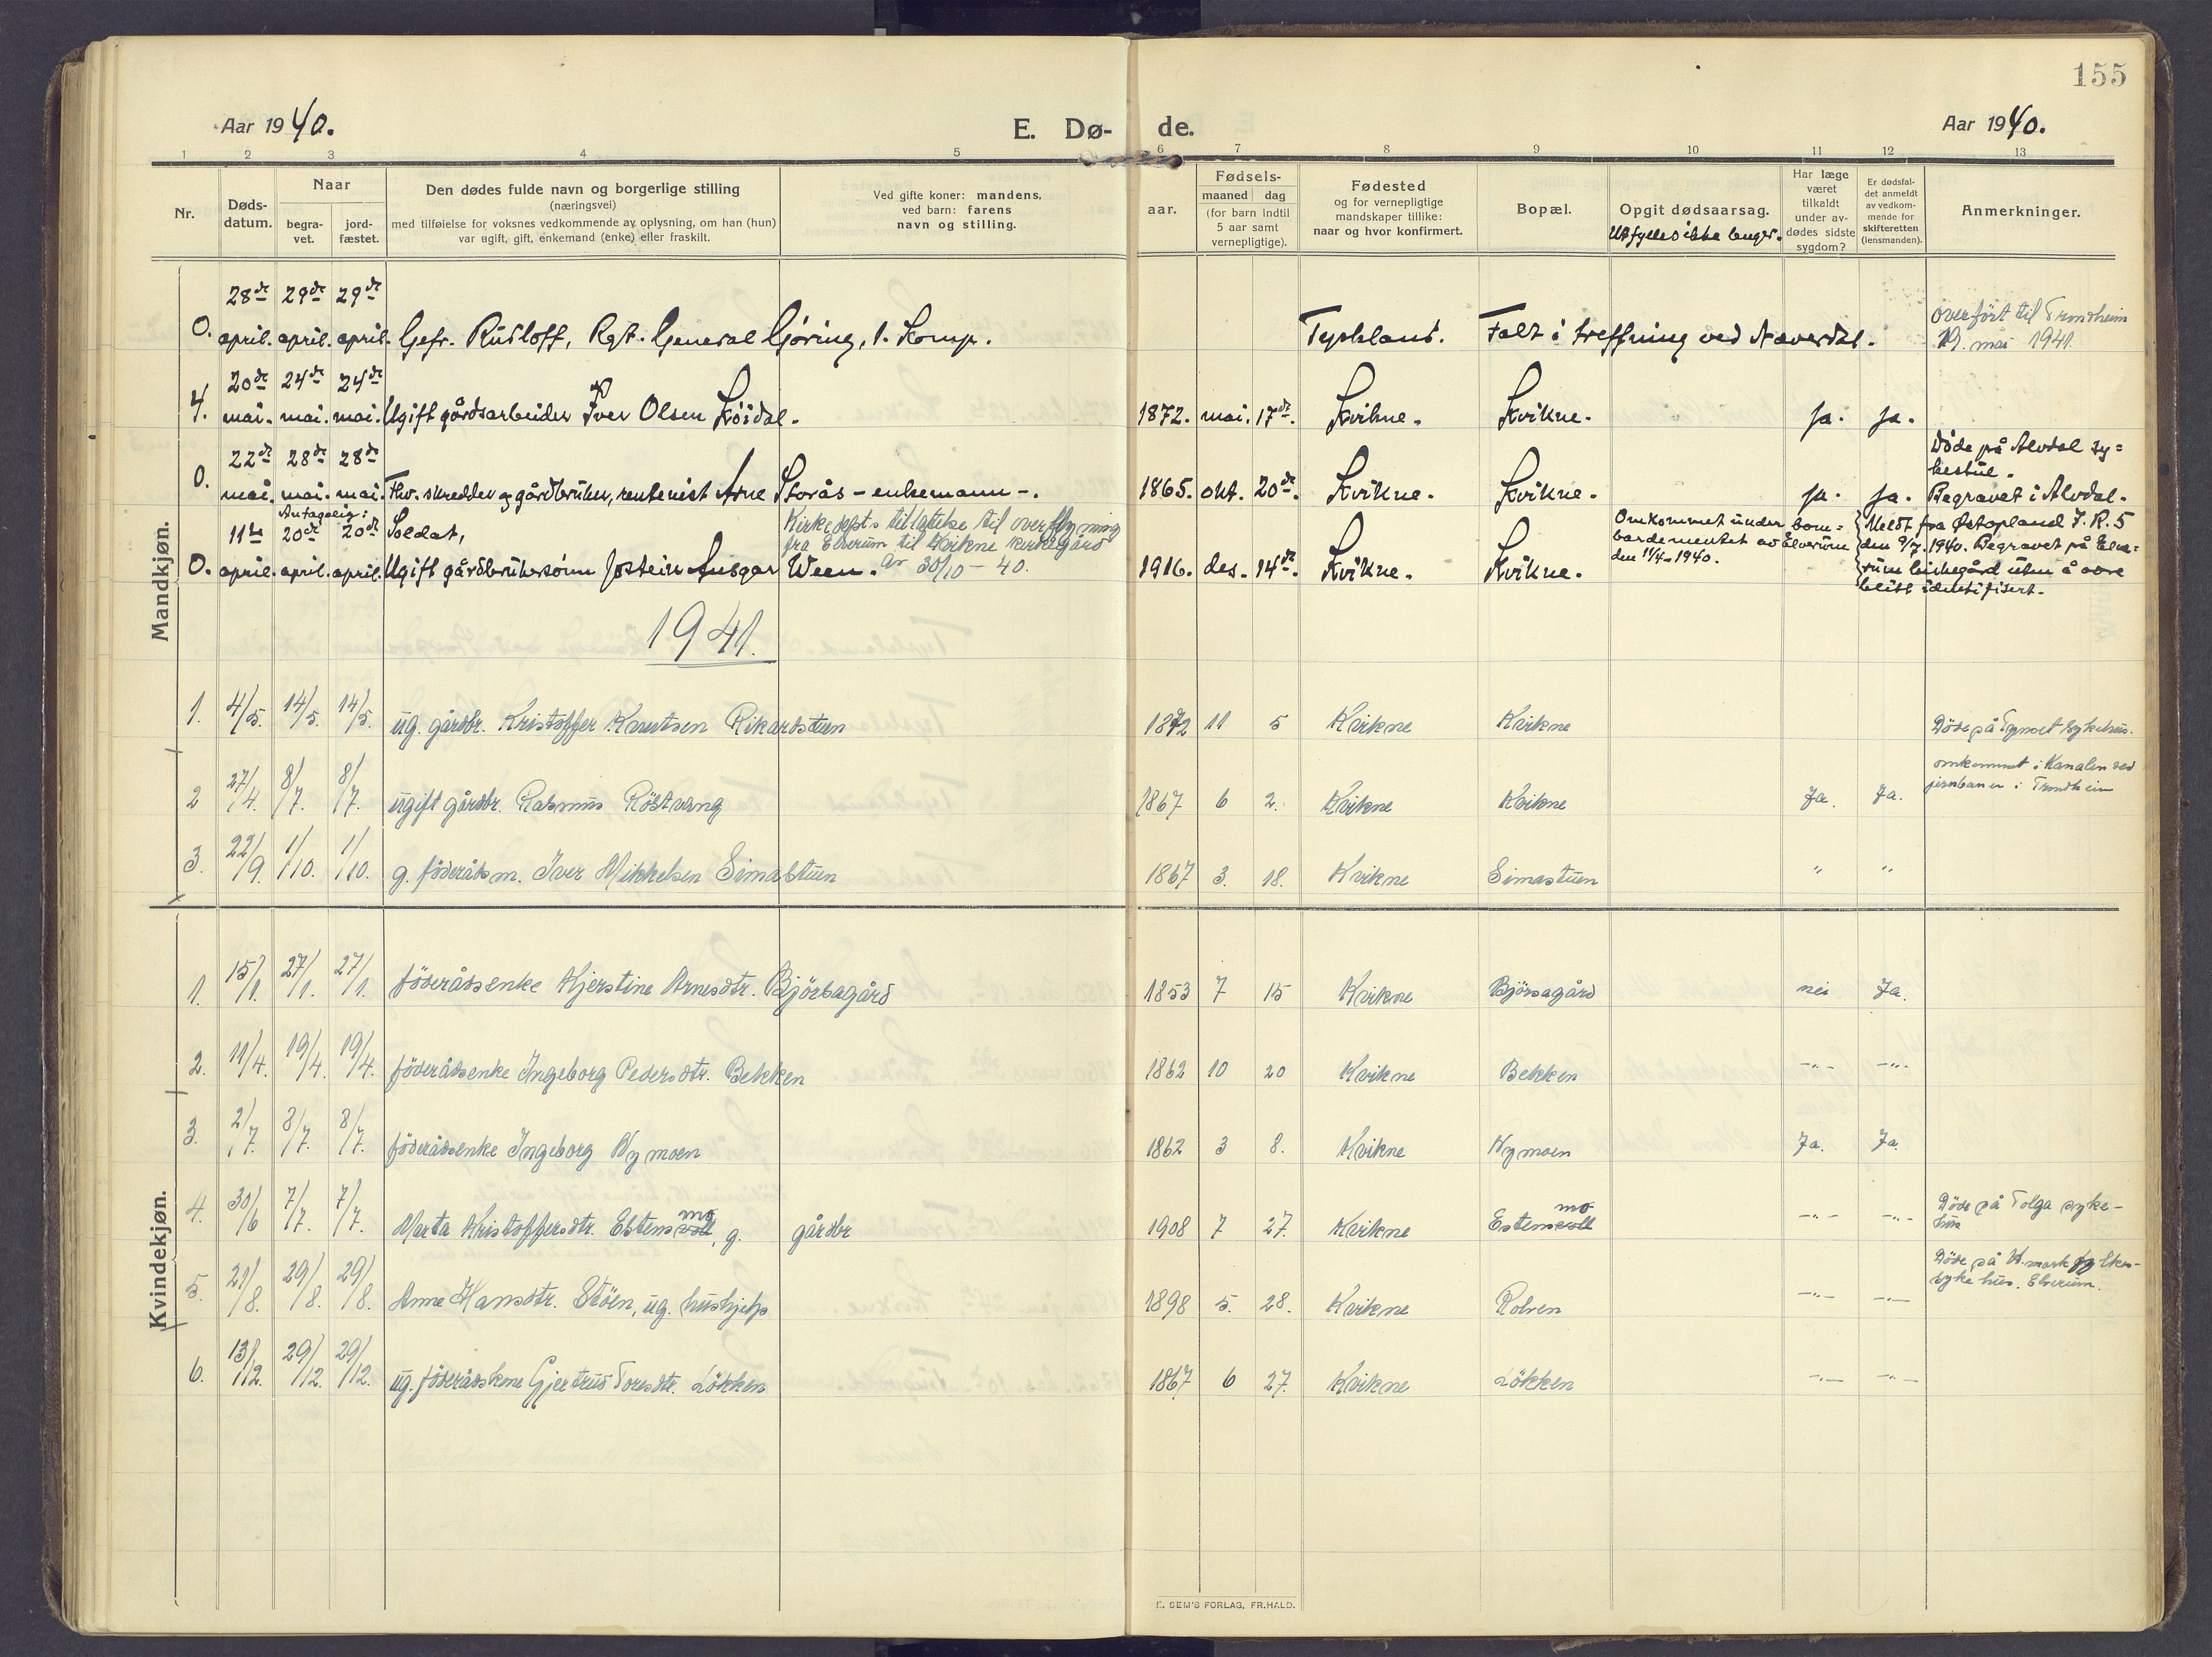 155
Aar 1940.
E. Dø- de.
Aar 1940.
1 2 3 4 5 6 7 8 9 10 11 12 13
Nr.
Døds-
datum.
Naar
begra-
vet.
jord-
fæstet.
Den dødes fulde navn og borgerlige stilling
(næringsvei)
med tilføielse for voksnes vedkommende av oplysning, om han (hun)
var ugift, gift, enkemand (enke) eller fraskilt.
Ved gifte koner: mandens,
ved barn: farens
navn og stilling.
Fødsels-
aar.
maaned dag
(for barn indtil
5 aar samt
vernepligtige).
Fødested
og for vernepligtige
mandskaper tillike:
naar og hvor konfirmert.
Bopæl.
Opgit dødsaarsag.
Utfylles ikke lenger.
Har læge
været
tilkaldt
under av-
dødes sidste
sygdom?
Er dødsfal-
det anmeldt
av vedkom-
mende for
skifteretten
(lensmanden).
Anmerkninger.
Mandkjøn.
28de 29de 29de
0. april. april. april. Gefr. Rudloff, Rgt. General Göring, 1. Komp. Tyskland. Falt i treffning ved Naverdal.
overført til Trondheim
19. mai 1941.
20de 24de 24de
4. mai. mai. mai. Ugift gårdsarbeider Iver Olsen Kóidal. 1872. mai. 17de. Kvikne. Kvikne. Ja. Ja.
22de 28de 28de
0. mai. mai. mai. Fhv. skredder og gårdbruker, rentenist Arne Storås - enkemann -. 1865. okt. 20de. Kvikne. Kvikne. Ja. Ja.
Døde på Alvdal sy=
kestue.
Begravet i Alvdal.
Antagelig:
11te 20de 20de Soldat,
0. april. april. april. Ugift gårdbrukersønn Jostein Ansgar Ween. 1916. des. 14de. Kvikne. Kvikne.
Kirkedepts tillatelse til overflyning
fra Elverum til Kvikne kirkegård
av 30/10 - 40.
Omkommet under bom=
bardementet av Elverum
den 11/4-1940.
Meldt fra Østopland I.R.5
den 9/7. 1940. Begravet på Elve=
rum kirkegård uten å være
blitt identifisert.
1941.
1. 4/5. 14/5. 14/5. ug. gårdbr. Kristoffer Knutsen Rikardstuen 1872 11 5 Kvikne Kvikne Döde på Tynset sykehus.
2 27/4. 8/7. 8/7. ugift gårdbr. Rasmus Röstvang 1867 6 2. Kvikne Kvikne Ja. Ja.
omkommet i Kanalen ved
jernbanen i Trondheim
3. 22/9. 1/10. 1/10. g. föderåtsm. Iver Mikkelsen Simastuen 1867 3. 18. Kvikne Simastuen " "
Kvindekjøn.
1. 15/1. 27/1. 27/1. föderådsenke Kjerstine Arnesdtr. Björsagård 1853 7 15 Kvikne Björsagård nei Ja.
2. 11/4. 19/4. 19/4. föderådsenke Ingeborg Pedersdtr. Bekken 1862 10 20 Kvikne Bekken -"- -"-
3. 2/7. 8/7. 8/7. föderådsenke Ingeborg Nymoen 1862 3 8. Kvikne Nymoen Ja. Ja.
4. 30/6 7/7. 7/7. Marta Kristoffersdtr. Estensmo, g. gårdbr 1908 7 27. Kvikne Estensmo -"- -"-
Döde på Tolga syke-
hus
5. 21/8. 29/8. 29/8. Anne Hansdtr. Stöen, ug. hushjelp 1898 5. 28. Kvikne -"- -"-
Döde på H.mark fylkes-
sykehus. Elverum.
6. 13/12. 29/12. 29/12. ug. föderådskone Gjertrud Toresdtr. Lökken 1867 6 27. Kvikne Lökken -"- -"-
E. SEM'S FORLAG, FR.HALD.